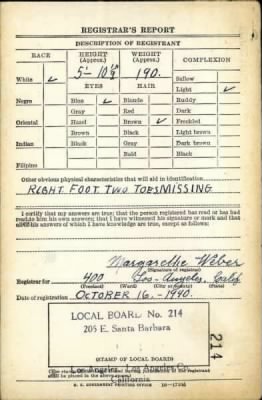 REGISTRAR'S REPORT
DESCRIPTION OF REGISTRANT
RACE HEIGHT (Approx.) WEIGHT (Approx.) COMPLEXION
White ✓ 5'-10½" 190. Sallow
EYES HAIR Light ✓
Negro Blue ✓ Blonde Ruddy
Gray Red Dark
Oriental Hazel Brown ✓ Freckled
Brown Black Light brown
Indian Black Gray Dark brown
Bald Black
Filipino
Other obvious physical characteristics that will aid in identification
RIGHT FOOT TWO TOES MISSING
I certify that my answers are true; that the person registered has read or has had
read to him his own answers; that I have witnessed his signature or mark and that
all of his answers of which I have knowledge are true, except as follows:
Margarette Weber
(Signature of registrar)
Registrar for 400 Los-Angeles, Calif.
(Precinct) (Ward) (City or county) (State)
Date of registration OCTOBER 16.-1940.
LOCAL BOARD No. 214
205 E. Santa Barbara
214
Los Angeles, Los Angeles Co.
California
STAMP OF LOCAL BOARD
(The stamp of the Local Board having jurisdiction of the registrant
shall be placed in the above space.)
U. S. GOVERNMENT PRINTING OFFICE